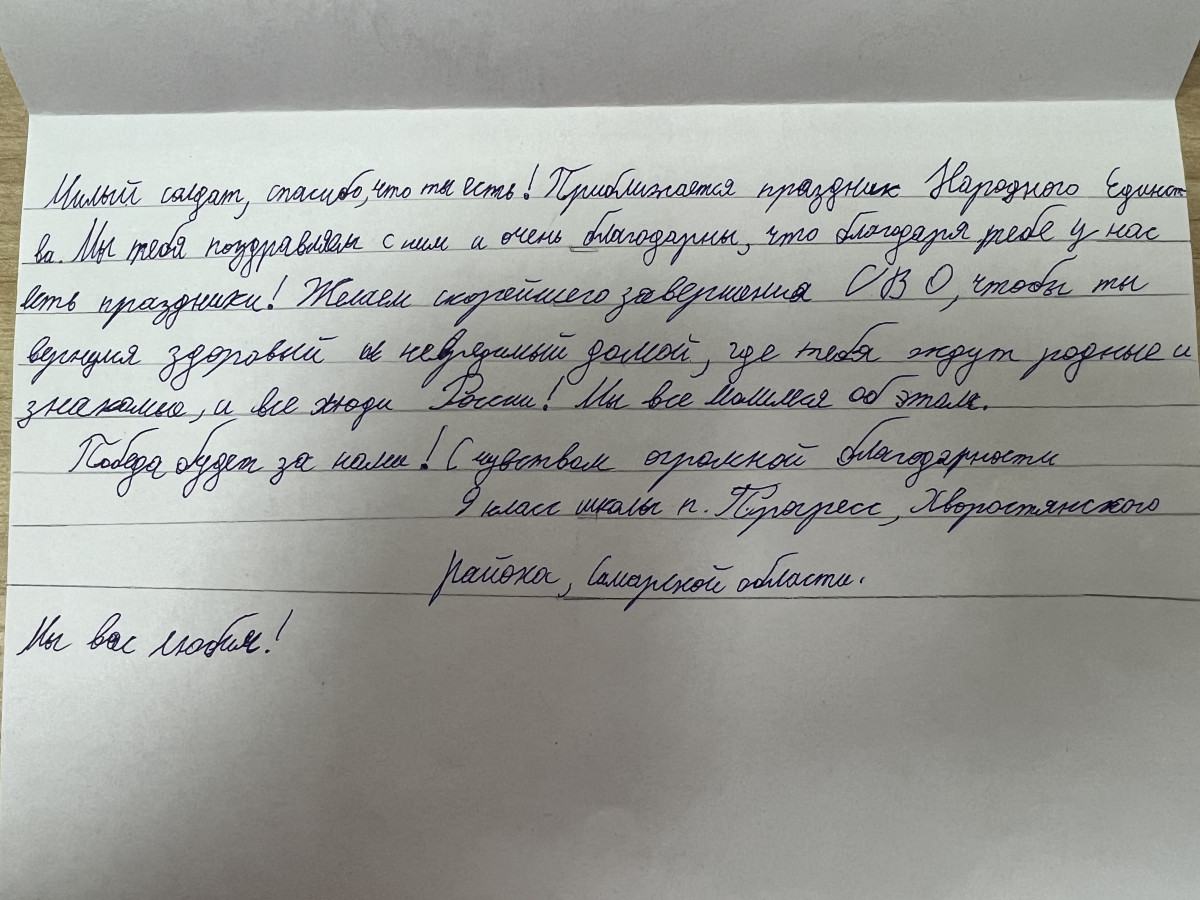 Милый солдат, спасибо, что ты есть! Приближается праздник Народного Единст
ва. Мы тебя поздравляем с ним и очень благодарны, что благодаря тебе у нас
есть праздники! Желаем скорейшего завершения СВО, чтобы ты
вернулся здоровый и невредимый домой, где тебя ждут родные и
знакомые, и все люди России! Мы все молимся об этом.
Победа будет за нами! С чувством огромной благодарности
9 класс школы п. Прогресс, Хворостянского
района, Самарской области.
Мы вас любим!